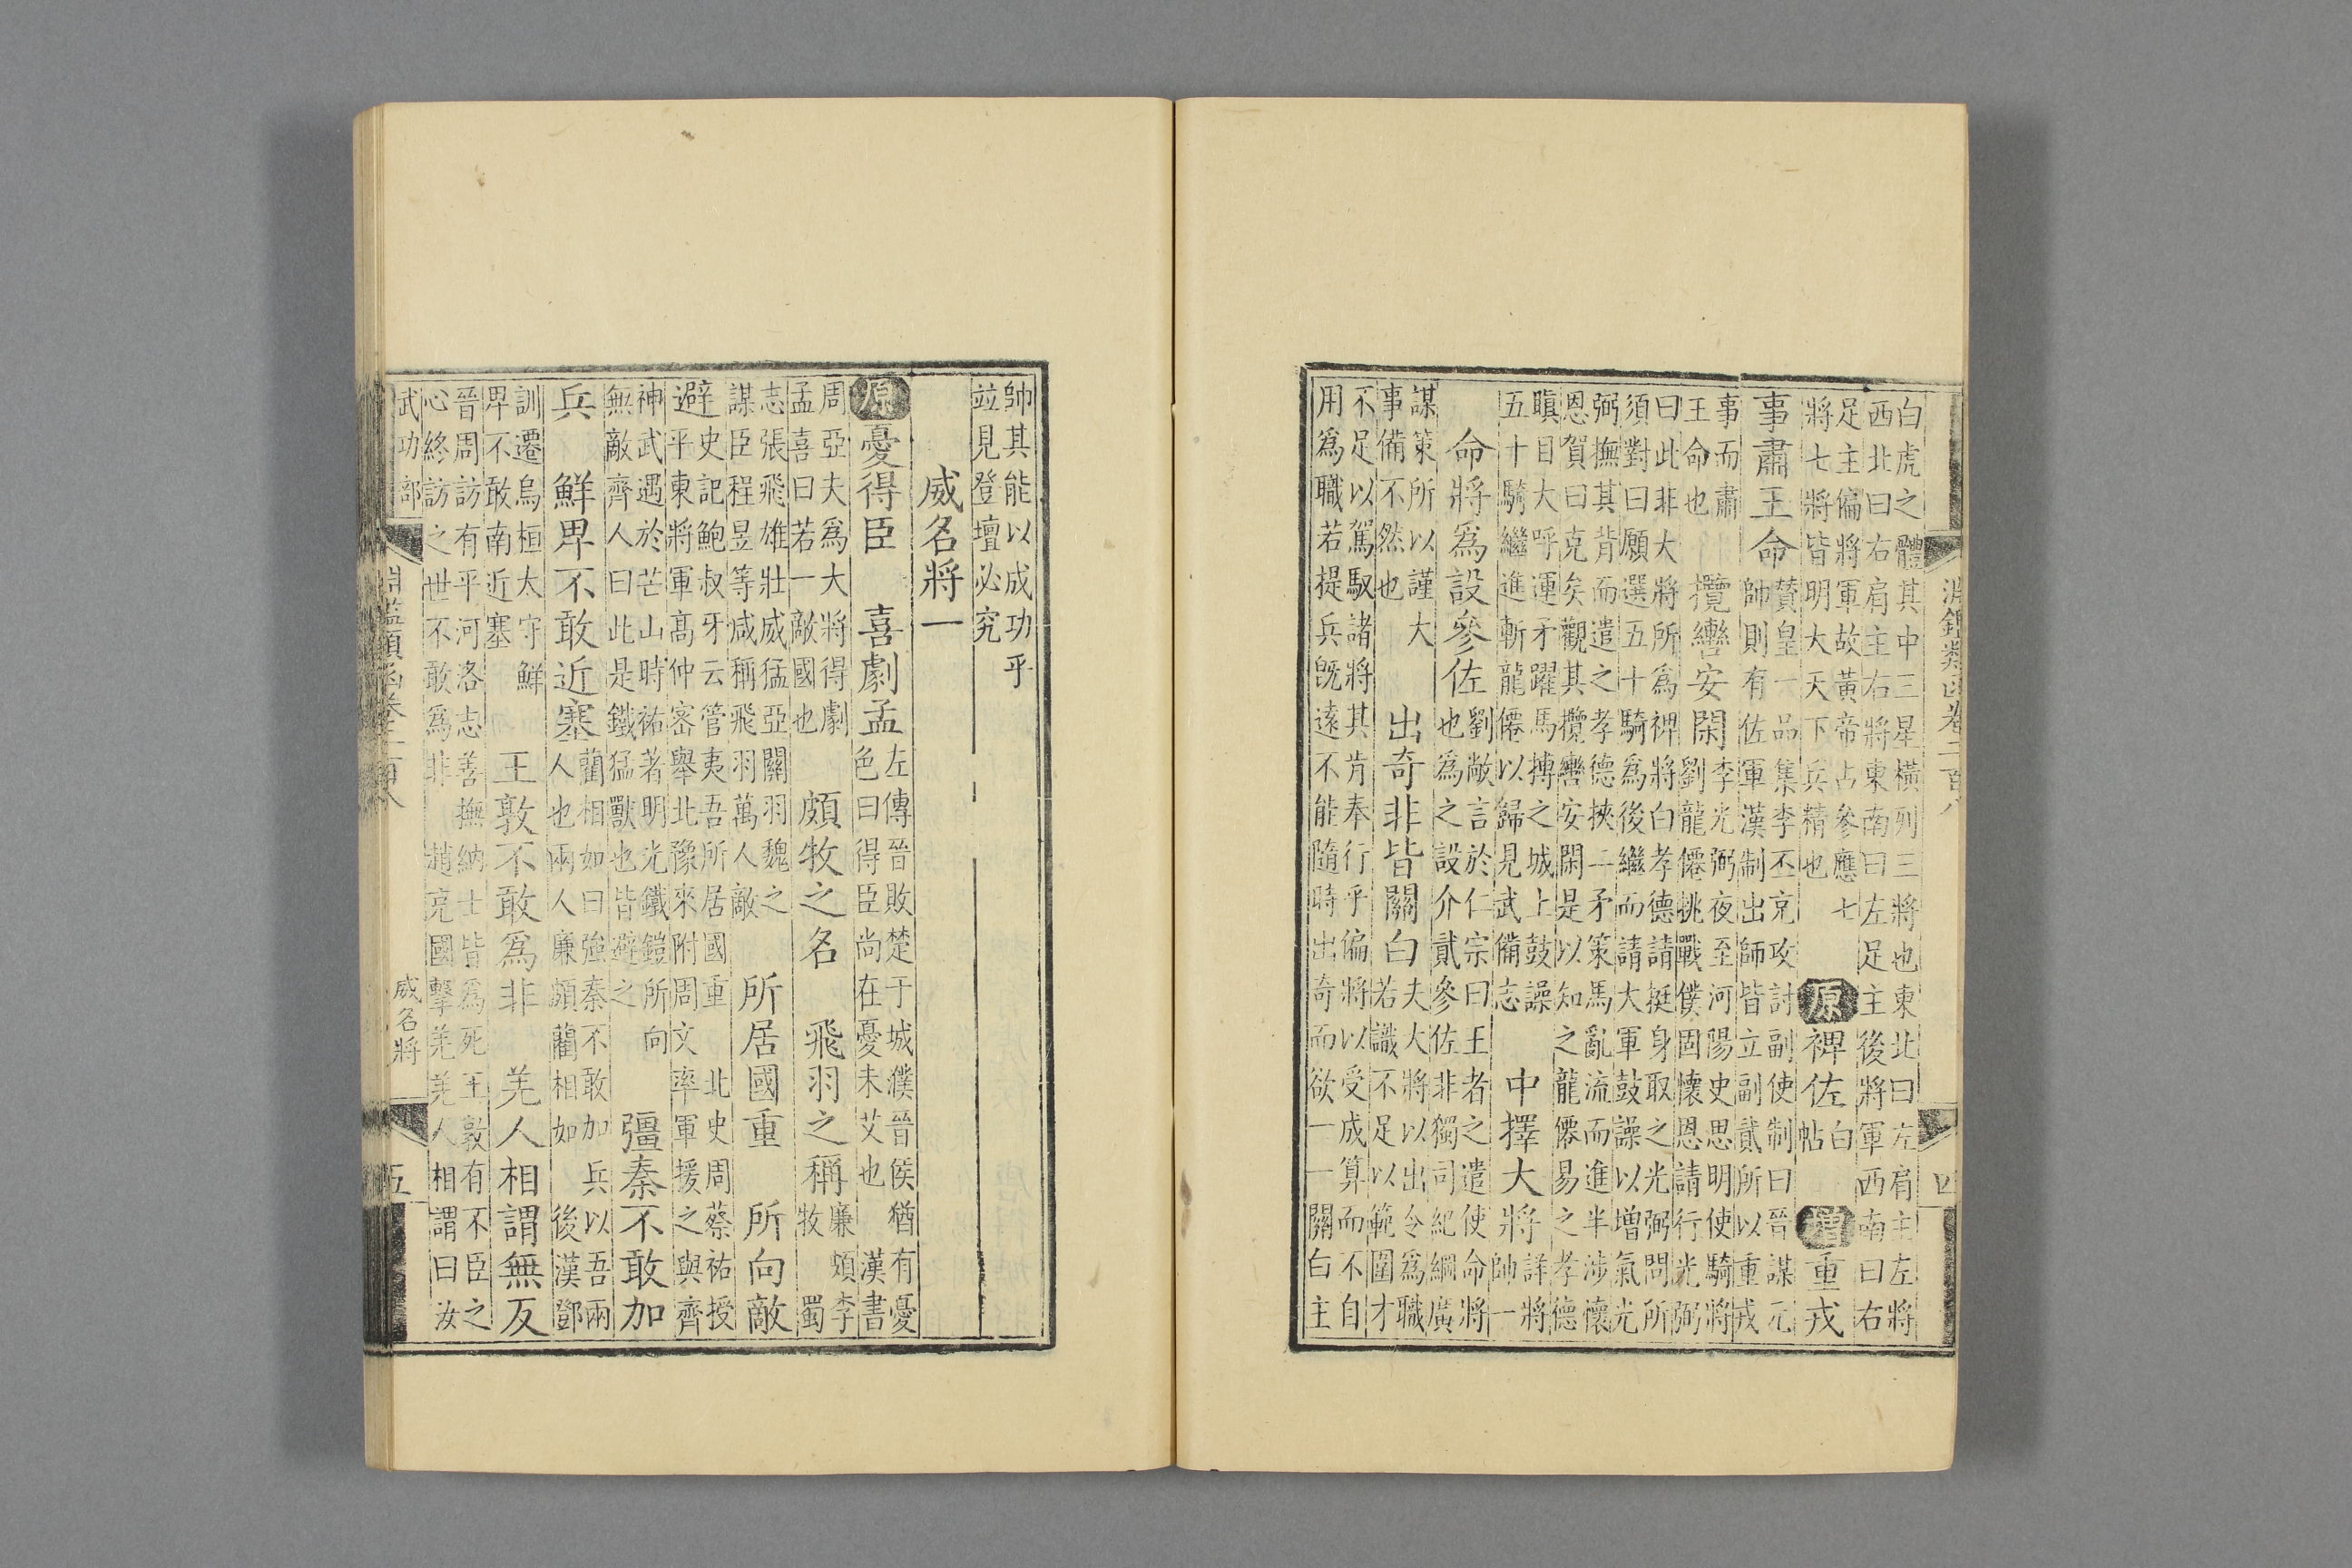 淵鑑類函卷二百八 四
白虎之體其中三星橫列三將也東北曰左肩主左將
西北曰右肩主右將東南曰左足主後將軍西南曰右
足主偏將軍故黃帝占參應七
將七將皆明大天下兵精也
原裨佐
白
帖
增重戎
事肅王命
贊皇一品集李丕克攻討副使制曰晉謀元
帥則有佐軍漢制出師皆立副貳所以重戎
事而肅
王命也
攬轡安閑
李光弼夜至河陽史思明使騎將
劉龍僊挑戰僕固懷恩請行光弼
曰此非大將所為裨將白孝德請挺身取之光弼問所
須對曰願選五十騎為後繼而請大軍鼓譟以增氣光
弼撫其背而遣之孝德挾二矛策馬亂流而進半涉懷
恩賀曰克矣觀其攬轡安閑是以知之龍僊易之孝德
瞋目大呼運矛躍馬搏之城上鼓譟
五十騎繼進斬龍僊以歸見武備志
中擇大將
詳將
帥一
命將爲設參佐
劉敞言於仁宗曰王者之遣使命將
也爲之設介貳參佐非獨司紀綱廣
謀策所以謹大
事備不然也
出奇非皆關白
夫大將以出令爲職
若識不足以範圍才
不足以駕馭諸將其肯奉行乎偏將以受成算而不自
用爲職若提兵旣遠不能隨時出奇而欲一一關白主
帥其能以成功乎
竝見登壇必究
威名將一
原憂得臣 喜劇孟
左傳晉敗楚于城濮晉侯猶有憂
色曰得臣尚在憂未艾也 漢書
周亞夫爲大將得劇
孟喜曰若一敵國也
頗牧之名 飛羽之稱
廉頗李
牧 蜀
志張飛雄壯威猛亞關羽魏之
謀臣程昱等咸稱飛羽萬人敵
所居國重 所向敵
避
史記鮑叔牙云管夷吾所居國重 北史周蔡祐授
平東將軍高仲密舉北豫來附周文率軍援之與齊
神武遇於芒山時祐著明光鐵鎧所向
無敵齊人曰此是鐵猛獸也皆避之
彊秦不敢加
兵 鮮卑不敢近塞
藺相如曰強秦不敢加兵以吾兩
人也兩人廉頗藺相如 後漢鄧
訓遷烏桓太守鮮
卑不敢南近塞
王敦不敢爲非 羌人相謂無反
晉周訪有平河洛志善撫納士皆爲死王敦有不臣之
心終訪之世不敢爲非 趙充國擊羌羌人相謂曰汝
武功部 淵鑑類函卷二百八 威名將 五